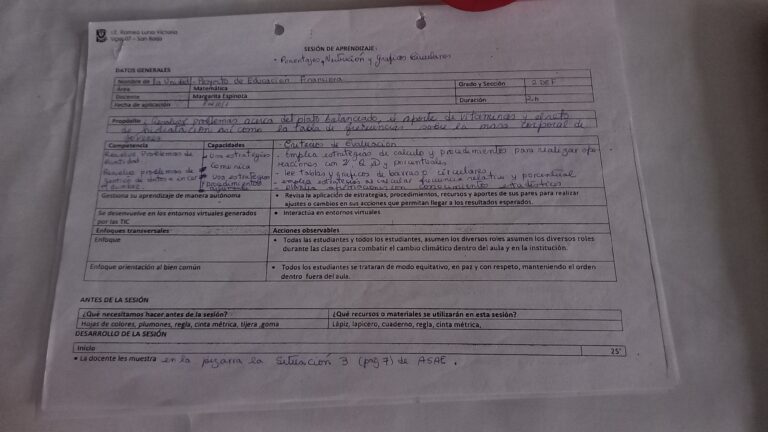 I.E. Romeo Luna Victoria
Ugel 07 – San Borja
SESIÓN DE APRENDIZAJE:
• Porcentajes, Nutrición y gráficos Circulares
DATOS GENERALES
Nombre de la Unidad - Proyecto de Educación Financiera
Área Matemática Grado y Sección 2 DEF
Docente Margarita Espinoza
Fecha de aplicación Duración 2h
Propósito : Resolver problemas acerca del plato balanceado, el aporte de vitaminas y el reto
de hidratación así como la tabla de frecuencias sobre la masa corporal de
jóvenes
Competencia Capacidades Criterios de Evaluación
Resuelve Problemas de cantidad • Usa estrategias • Comunica - Emplea estrategias de calculo y procedimientos para realizar ope
raciones con Z, Q, D y porcentuales
Resuelve problemas de gestión de datos e incer • Usa estrategias procedimientos - lee tablas y graficos de barras o circulares
- emplea estrategias al calcular frecuencia relativa y porcentual
- plantea afirmaciones con conocimientos estadísticos
Gestiona su aprendizaje de manera autónoma • Revisa la aplicación de estrategias, procesos, recursos y aportes de sus pares para realizar
ajustes o cambios en sus acciones que permitan llegar a los resultados esperados.
Se desenvuelve en los entornos virtuales generados • Interactúa en entornos virtuales
por las TIC
Enfoques transversales Acciones observables
Enfoque • Todas las estudiantes y todos los estudiantes, asumen los diversos roles asumen los diversos roles
durante las clases para combatir el cambio climático dentro del aula y en la institución.
Enfoque orientación al bien común • Todos los estudiantes se trataran de modo equitativo, en paz y con respeto, manteniendo el orden
dentro fuera del aula.
ANTES DE LA SESIÓN
¿Qué necesitamos hacer antes de la sesión? ¿Qué recursos o materiales se utilizarán en esta sesión?
Hojas de colores, plumones, regla, cinta métrica, tijera ,goma Lápiz, lapicero, cuaderno, regla, cinta métrica,
DESARROLLO DE LA SESIÓN
Inicio 25'
• La docente les muestra en la pizarra la Situación 3 (pag 7) de ASAE.